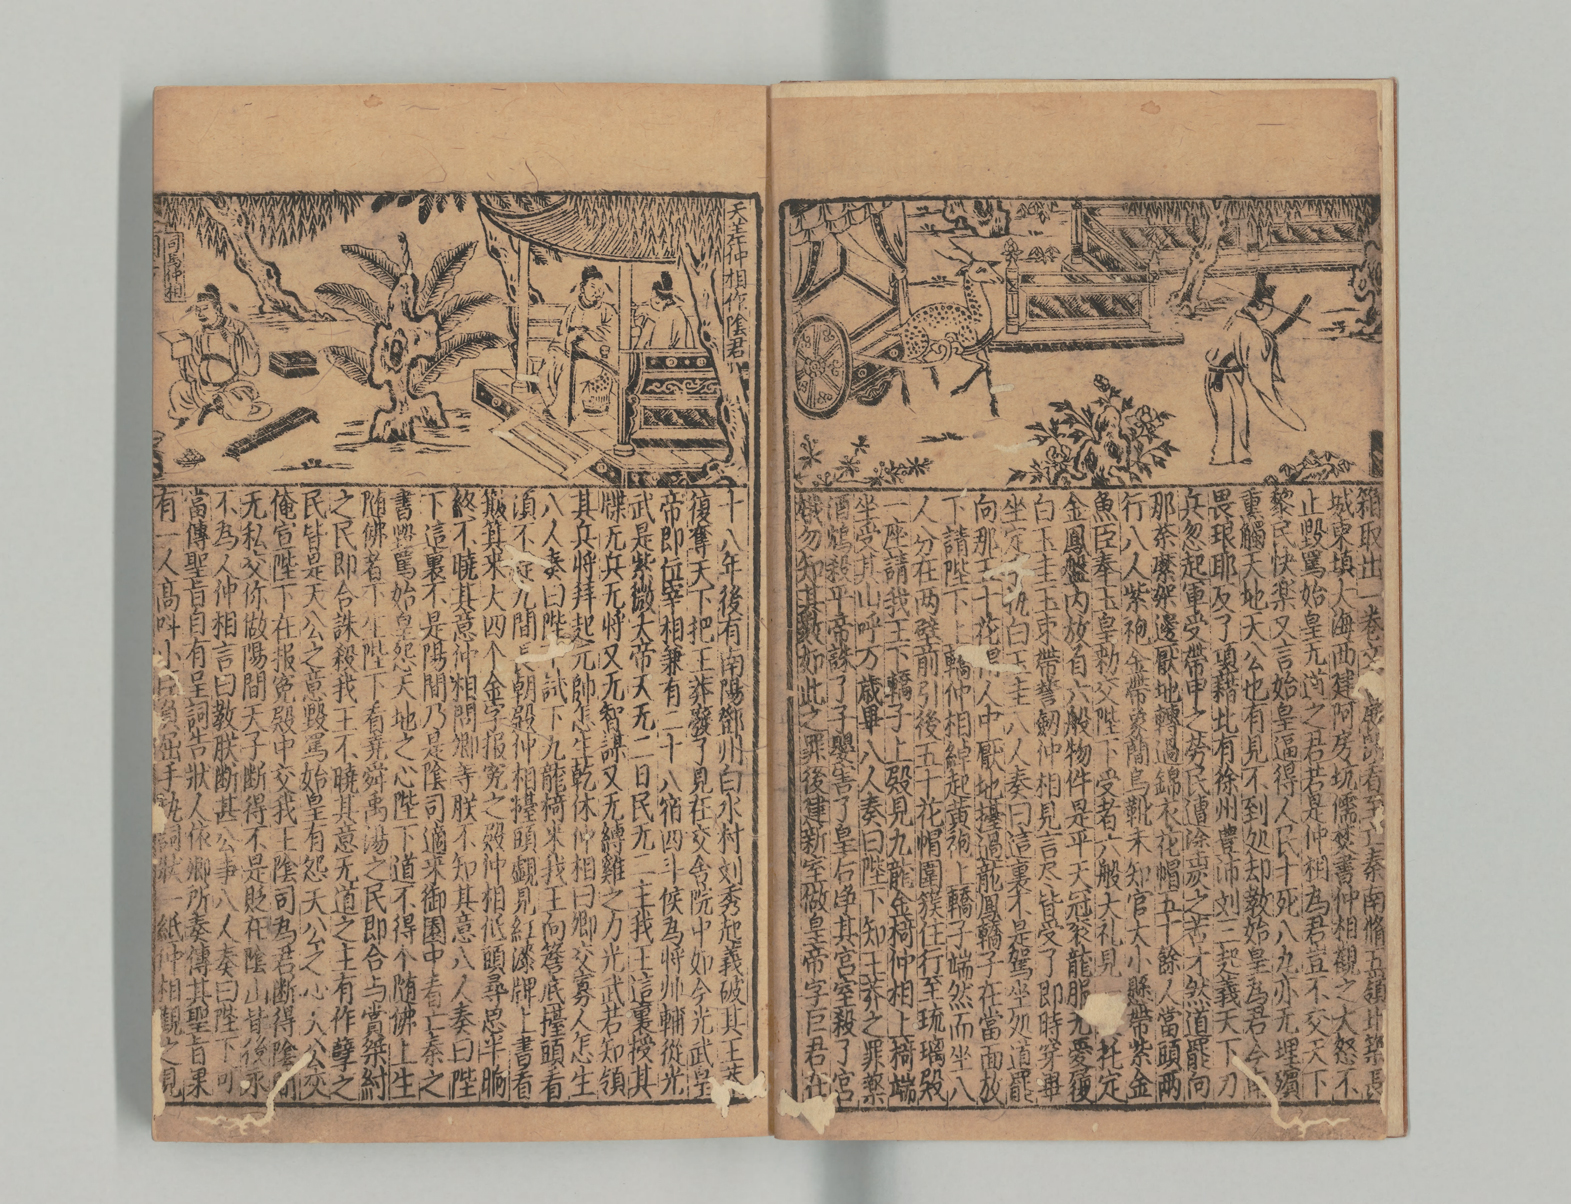 箱取出一卷文書展開看至亡秦南脩五嶺北築長
城東填大海西建阿房坑儒焚書仲相觀之大怒不
止毀罵始皇无道之君若是仲相為君豈不交天下
黎民快楽又言始皇逼得人民十死八九亦无埋殯
熏觸天地天公也有見不到処却教始皇為君今南
畏琅耶反了項籍北有徐州豊沛刘三起義天下刀
兵忽起軍受帶甲之劳民遭除炭之苦才然道罷向
那荼䕷架邊厭地轉過錦衣花帽五十餘人當頭两
行八人紫袍金帶象簡烏靴未知官大小懸帶紫金
魚臣奉玉皇勅交陛下受者六般大礼見
金鳳盤内放着六般物件是平天冠衮龍服无憂履
白玉圭玉束帶誓劒仲相見言尽皆受了即時穿畢
坐定 执白玉圭八人奏曰這裏不是駕坐処道罷
向那五十花帽人中厭地擡過龍鳳轎子在當面放
下請陛下上轎仲相綽起黄袍上轎子端然而坐八
人分在两壁前引後五十花帽圍簇住行至琉璃殿
一座請我王下轎子上殿見九龍金椅仲相上椅端
坐受其山呼万歲畢八人奏曰陛下知王莽之罪藥
酒鴆殺平帝誅了子嬰害了皇后浄其宮室殺了宮
娥勿知其數如此之罪後建新室做皇帝字巨君在
天差仲相作陰君
司馬仲相
十八年後有南陽鄧州白水村刘秀起義破其王莽
復奪天下把王莽廢了見在交舍院中如今光武皇
帝即位宰相兼有二十八宿四斗候為將帅輔從光
武是紫微大帝天无二日民无二主我王這裏授其
牒无兵无將又无智謀又无縛雞之力光武若知領
其兵將拜起元帥怎生乾休仲相曰卿交寡人怎生
八人奏曰陛下試下九龍椅来我王向簷底擡頭看
須不是九間長朝殿仲相擡頭覷見紅漆牌上書着
簸箕来大四个金字报寃之殿仲相低頭尋思半晌
終不曉其意仲相問卿等朕不知其意八人奏曰陛
下這裏不是陽間乃是陰司適来御園中看亡秦之
書毀罵始皇怨天地之心陛下道不得个随佛上生
随佛者下生陛下看堯舜禹湯之民即合与賞桀紂
之民即合誅殺我王不曉其意无道之主有作孽之
民皆是天公之意毀罵始皇有怨天公之心天公交
俺宣陛下在报寃殿中交我王陰司為君断得陰間
无私交你做陽間天子断得不是貶在陰山背後永
不為人仲相言曰教朕断甚公事八人奏曰陛下可
當傳聖旨自有呈詞告狀人依卿所奏傳其聖旨果
有一人高呌小臣負屈手執詞狀一紙仲相觀之見